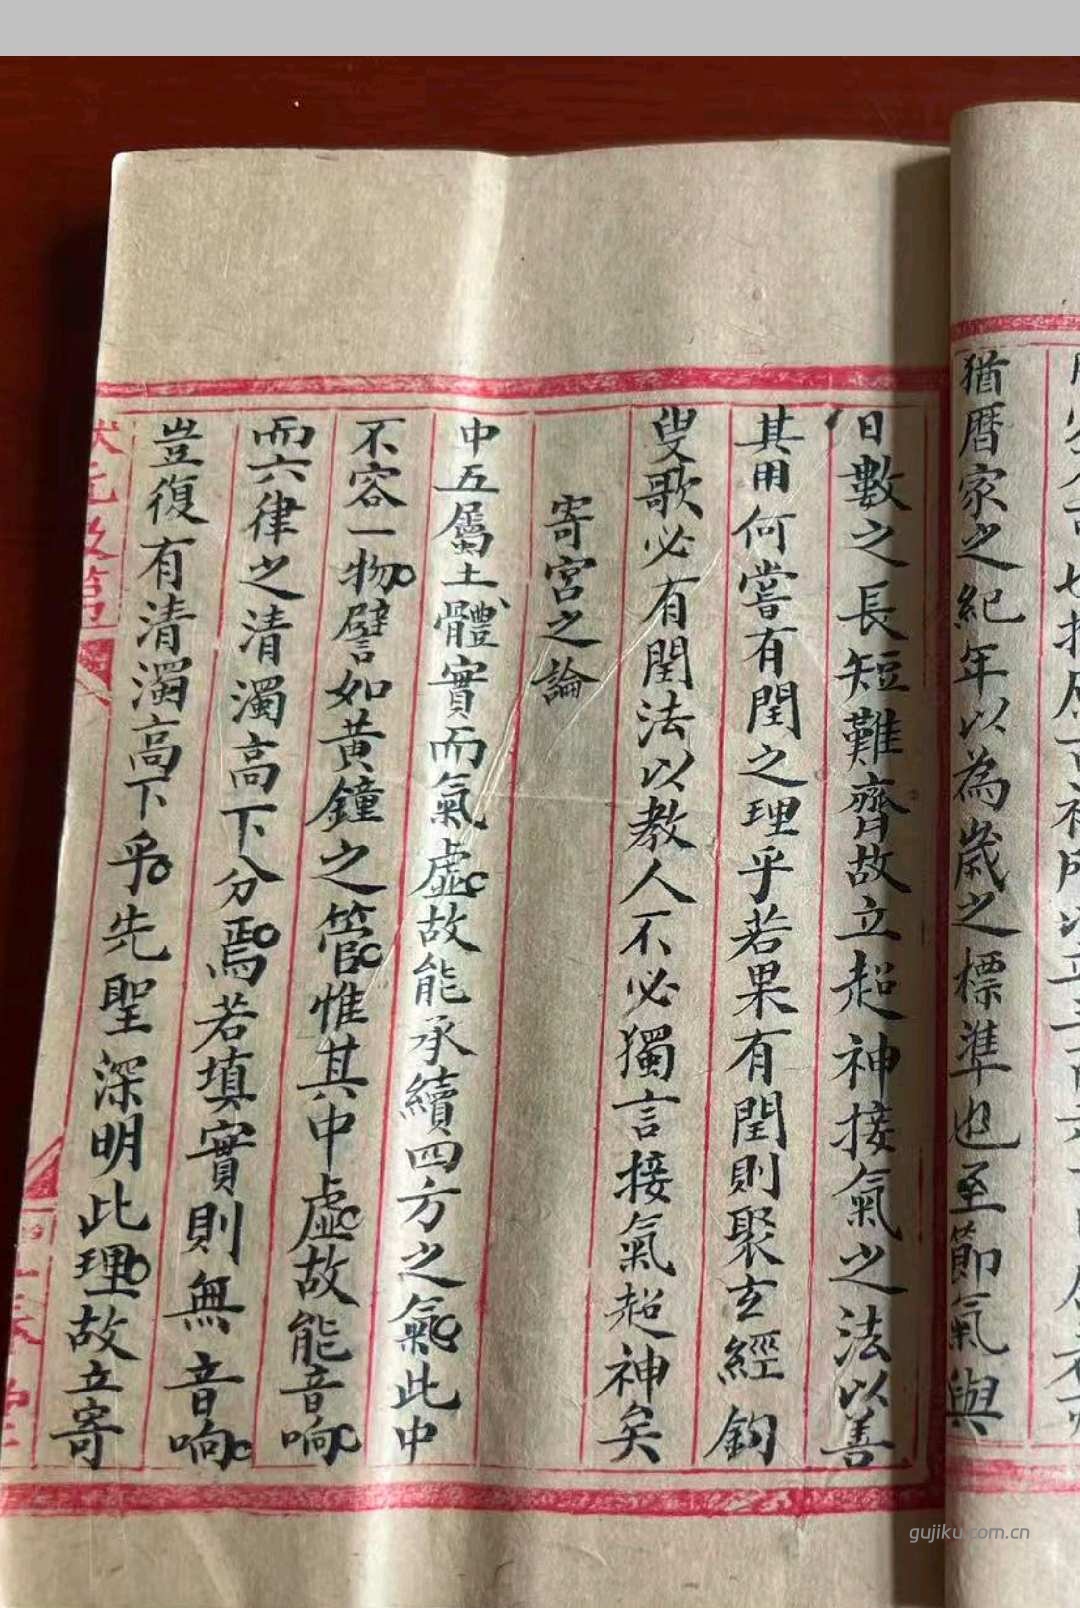 猶曆家之紀年以為歲之標準也至節氣與
日數之長短難齊故立超神接氣之法以善
其用何嘗有閏之理乎若果有閏則聚玄經鈎
叟歌必有閏法以教人不必獨言接氣超神矣
寄宮之論
中五屬土體實而氣虛故能承續四方之氣此中
不容一物譬如黃鐘之管惟其中虛故能音响
而六律之清濁高下分焉若填實則無音响
豈復有清濁高下乎先聖深明此理故立寄
狀元及第
gujiku.com.cn